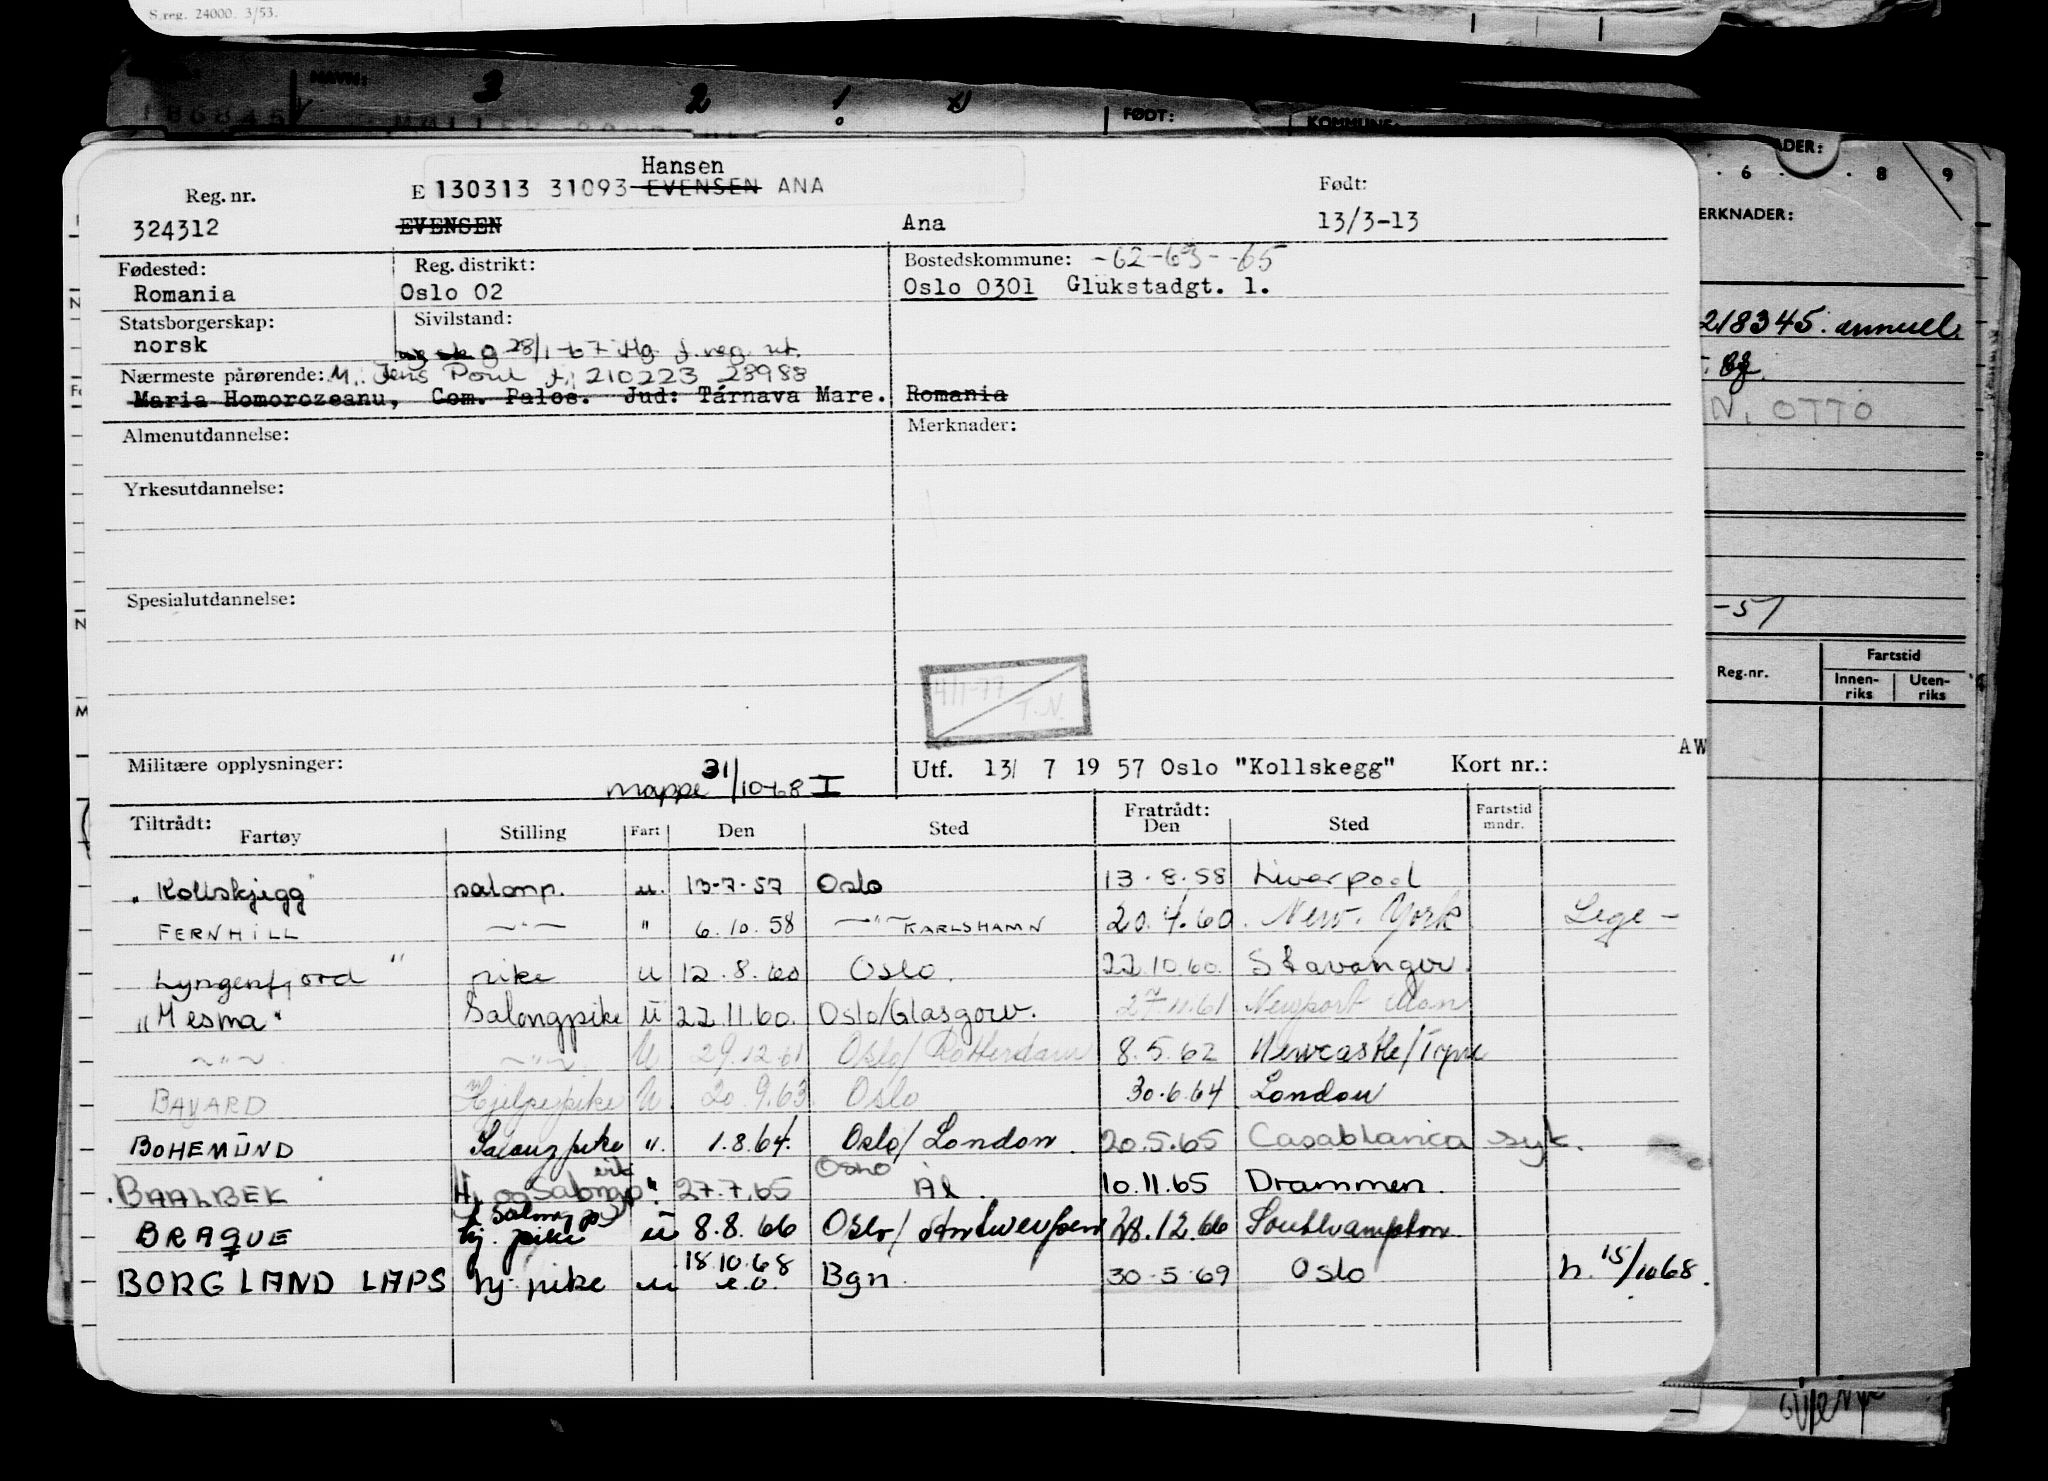 S.reg. 24000. 3/53.
NAVN: 3 2 1
FØDT:
KOMMUNE:
Hansen
Reg. nr. E 130313 31093 EVENSEN ANA Født:
324312 EVENSEN Ana 13/3-13
Fødested: Reg. distrikt: Bostedskommune: -62-63--65
Romania Oslo 02 Oslo 0301 Glükstadgt. 1.
Statsborgerskap: Sivilstand:
norsk g 28/1-67 Hg f. reg. nt.
Nærmeste pårørende: M. Jens Poul f. 210223 28988
Maria Homorozeanu, Com. Palos. Jud: Târnava Mare. Romania
Almenutdannelse: Merknader:
Yrkesutdannelse:
Spesialutdannelse:
4/1-77
T.N.
Militære opplysninger: mappe 31/10-68 I Utf. 13/ 7 19 57 Oslo "Kollskegg" Kort nr.:
AW
Tiltrådt: Fratrådt: Fartstid
Fartøy Stilling Fart Den Sted Den Sted mndr.
"Kollskjegg" salonp. u. 13-7-57 Oslo 13.8.58 Liverpool
FERNHILL —"— " 6.10.58 —"— KARLSHAMN 20.4.60. New York Lege -
Lyngenfjord" pike u 12.8.60 Oslo. 22.10.60. Stavanger.
"Mesna" Salongpike u 22.11.60. Oslo/Glasgow. 27.11.61 Newport Mon
—"— —"— U 29.12.61 Oslo/Rotterdam 8.5.62 Newcastle/Tyne
BAYARD Hjelpepike U. 20.9.63. Oslo 30.6.64 London
BOHEMUND Salongpike ". 1.8.64. Oslo/London. 20.5.65 Casablanca syk.
BAALBEK Hj og Salongp ". 27.7.65 Oslo Ål. 10.11.65 Drammen.
BRAQUE hj. pike Salongp u 8.8.66 Oslo/Antwerpen 28.12.66 Southampton.
BORGLAND LAPS hj. pike u 18.10.68 e.o. Bgn. 30.5.69 Oslo h. 15/1068.
6 8 9
ERKNADER:
218345. annull.
N, OTTO
-51
Reg.nr. Fartstid
Innen-riks Uten-riks